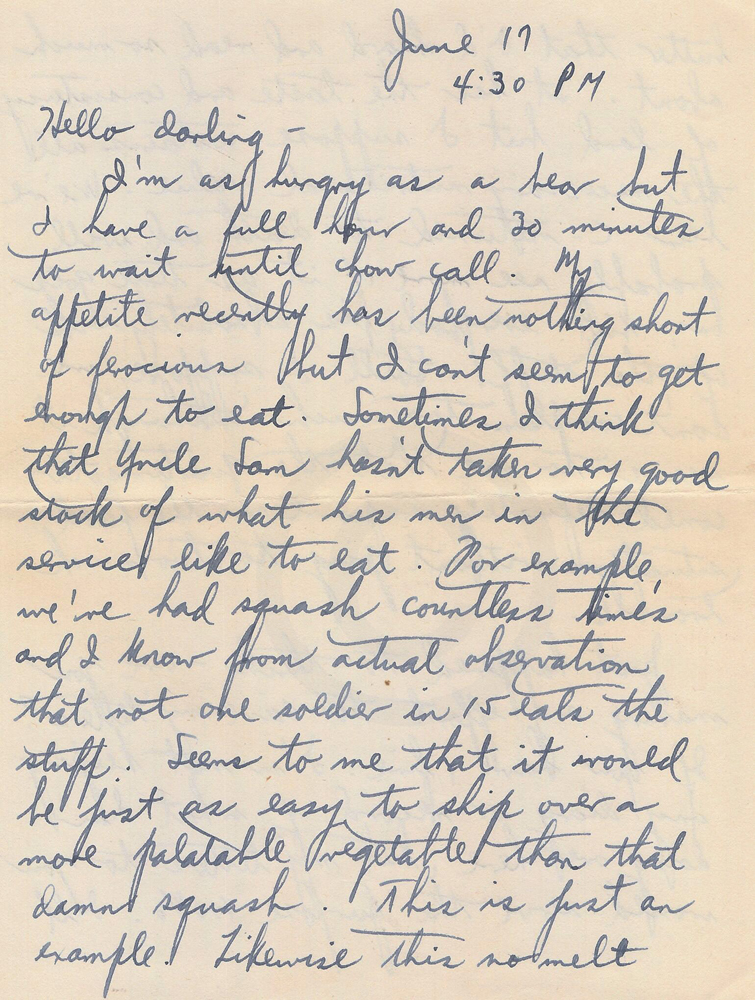 June 17
4:30 PM
Hello darling -
I'm as hungry as a bear but
I have a full hour and 30 minutes
to wait until chow call. My
appetite recently has been nothing short
of ferocious but I can't seem to get
enough to eat. Sometimes I think
that Uncle Sam hasn't taken very good
stock of what his men in the
service like to eat. For example,
we've had squash countless times
and I know from actual observation
that not one soldier in 15 eats the
stuff. Seems to me that it would
be just as easy to ship over a
more palatable vegetable than that
damn squash. This is just an
example. Likewise this no melt